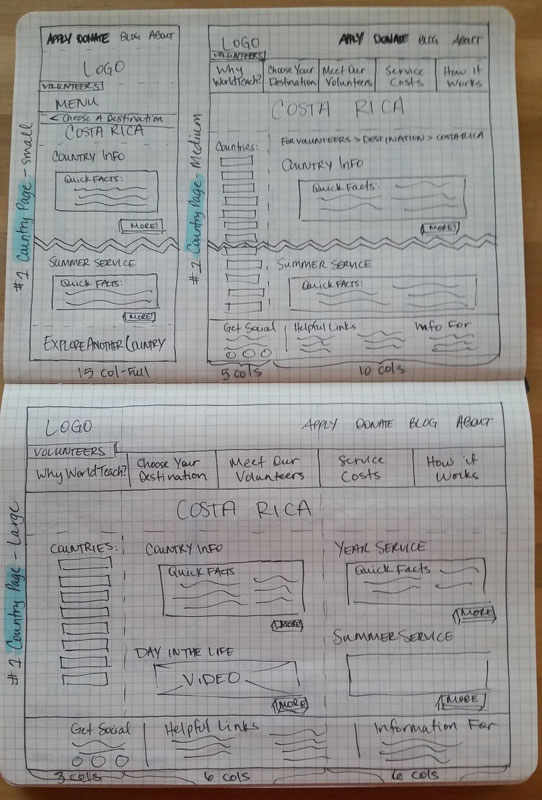 #1 Country Page - Small
APPLY DONATE BLOG ABOUT
LOGO
VOLUNTEERS
MENU
< Choose A Destination
COSTA RICA
COUNTRY INFO
QUICK FACTS:
MORE!
SUMMER SERVICE
QUICK FACTS:
MORE!
EXPLORE ANOTHER COUNTRY
15 COL-FULL
#1 Country Page - Medium
LOGO APPLY DONATE BLOG ABOUT
VOLUNTEERS
Why WorldTeach? Choose Your Destination Meet Our Volunteers Service Costs How it Works
COSTA RICA
Countries:
FOR VOLUNTEERS > DESTINATION > COSTA RICA
COUNTRY INFO
QUICK FACTS:
MORE!
SUMMER SERVICE
QUICK FACTS:
Get Social Helpful Links Info For
5 cols 10 cols
#1 Country Page - Large
LOGO APPLY DONATE BLOG ABOUT
VOLUNTEERS
Why WorldTeach? Choose Your Destination Meet Our Volunteers Service Costs How it Works
COSTA RICA
COUNTRIES:
COUNTRY INFO
QUICK FACTS
MORE
YEAR SERVICE
QUICK FACTS
MORE
DAY IN THE LIFE
VIDEO
MORE
SUMMER SERVICE
MORE
Get Social Helpful Links Information For
3 cols 6 cols 6 cols